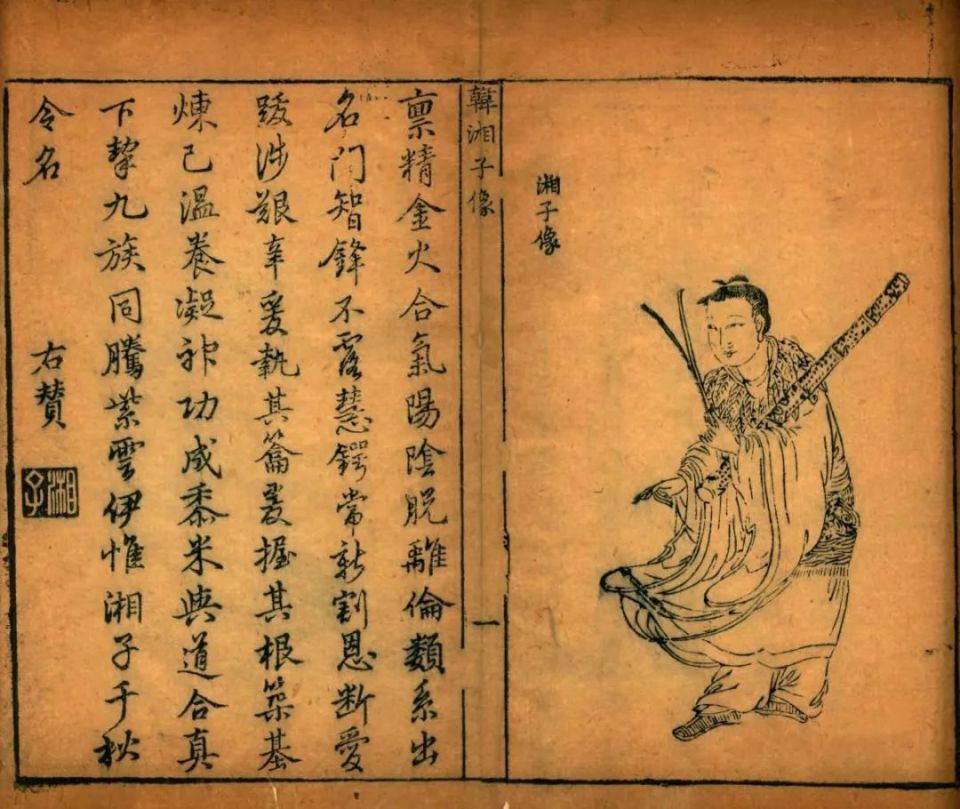 湘子像
韓湘子像
一
禀精金火合氣陽陰脫離倫類系出
名門智鋒不露慧鍔常新割恩断愛
跋涉艱辛爰執其籥爰握其根築基
煉己溫養凝神功成黍米與道合真
下挈九族同騰紫雲伊惟湘子千秋
令名
右贊
湘子